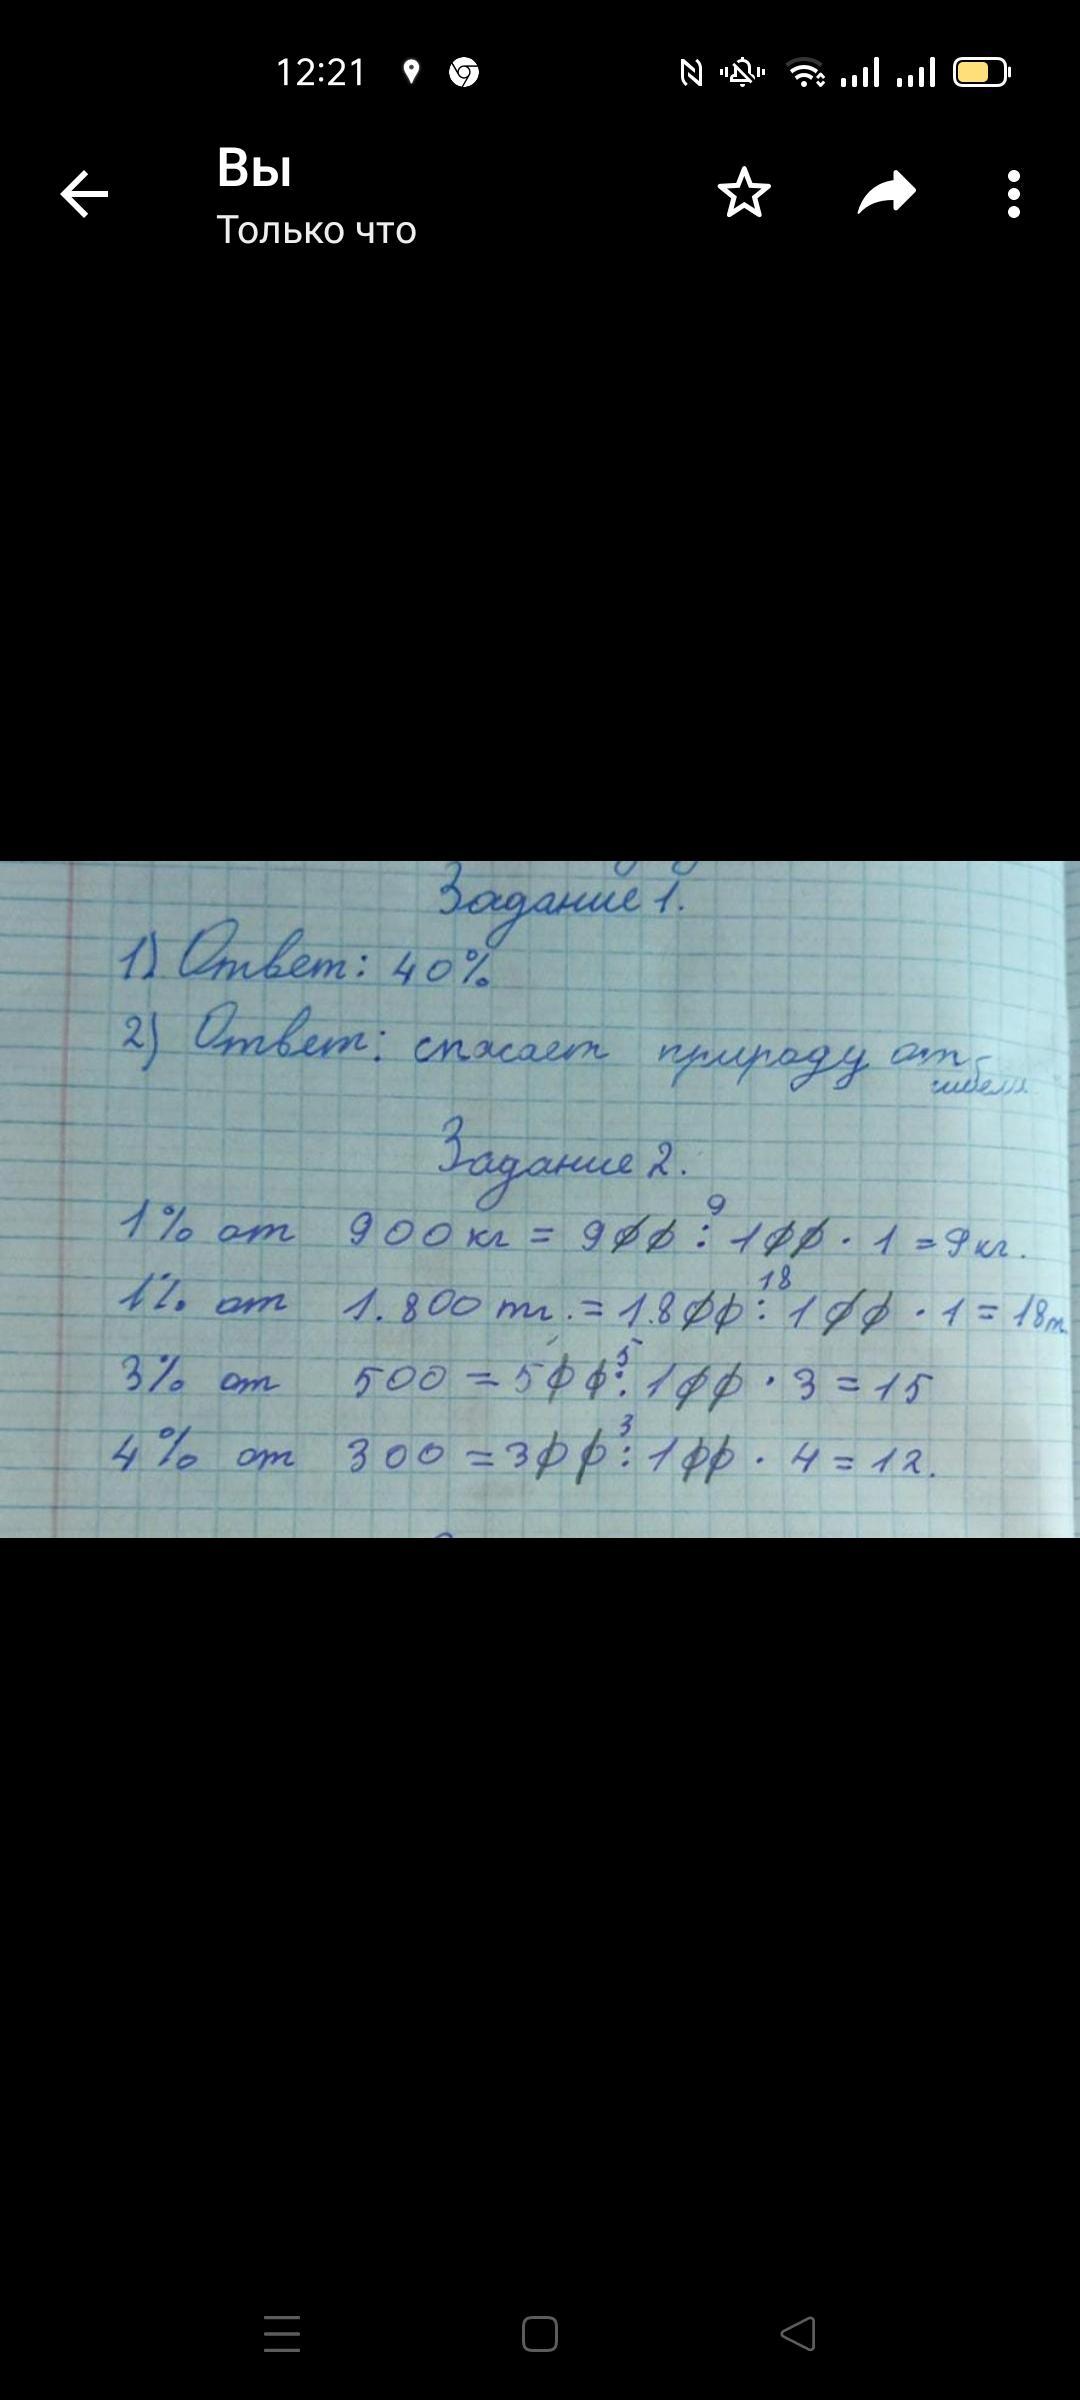 12:21
Вы
Только что
Задание 1.
1) Ответ: 40%
2) Ответ: спасает природу от гибели
Задание 2.
1% от 900 кг = 900 : 100 · 1 = 9 кг.
9
1% от 1.800 тг. = 1.800 : 100 · 1 = 18т
18
3% от 500 = 500 : 100 · 3 = 15
5
4% от 300 = 300 : 100 · 4 = 12.
3